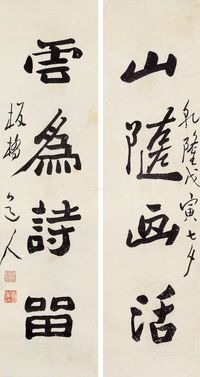 山隨画活
乾隆戊寅七夕
雲爲詩留
板橋道人